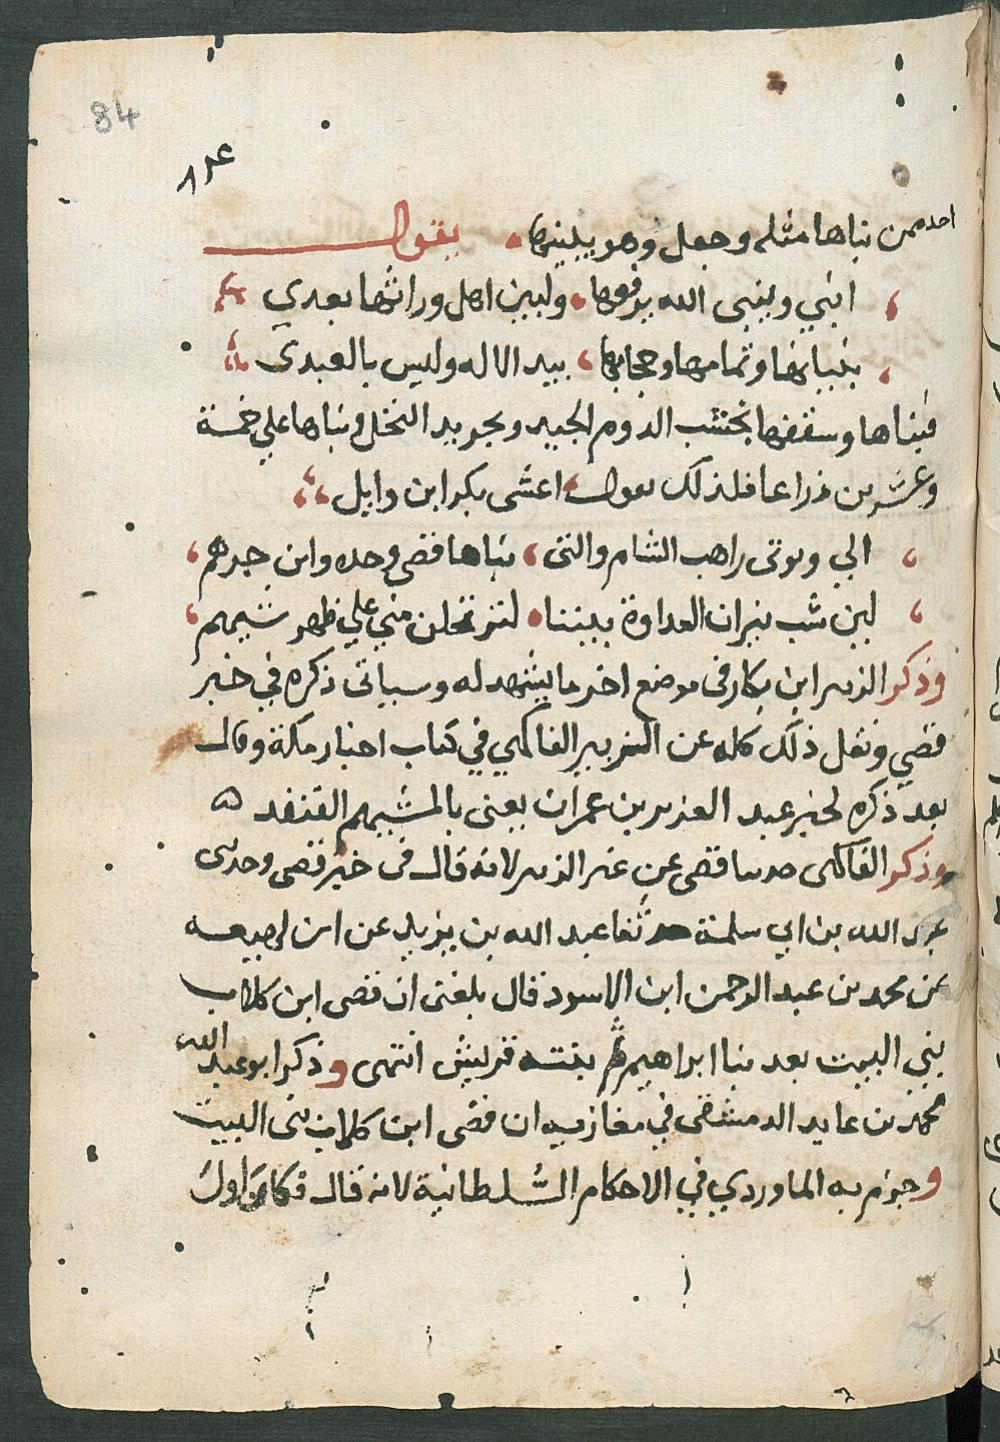 84
٨٤
احد ممن بناها مثله وجعل وهو يبنيها يقول
ابني ويبني الله يرفعها وليبن اهل وراثها بعدي
بنيانها وتمامها وحجابها بيد الاله وليس بالعبدي
فبناها وسقفها بخشب الدوم الجيد وبجريد النخل وبناها علي خمسة
وعشرين ذراعا فلذلك يقول اعشى بكر ابن وايل
الي وثوبى راهب الشام والتى بناها قصي وحده وابن جرهم
لين شب نيران العداوة بيننا لترتحلن مني علي ظهر شيهم
وذكر الزبير ابن بكار في موضع اخر ما يشهد له وسياتى ذكره في خبر
قصي ونقل ذلك كله عن الزبير الفاكهي في كتاب اخبار مكة وقال
بعد ذكره لخبر عبد العزيز بن عمران يعنى بالشيهم القنفد ه
وذكر الفاكهى قصى عن غير الزبير لانه قال فى خبر قصى وحدثنى
عبد الله بن ابي سلمة ثنا عبد الله بن يزيد عن ابن لهيعه
عن محمد بن عبد الرحمن ابن الاسود قال بلغنى ان قصى ابن كلاب
بني البيت بعد بنا ابراهيم ثم بنته قريش انتهى وذكر ابو عبد الله
محمد بن عايد الدمشقى في مغازيه ان قصى ابن كلاب بنى البيت
وجزم به الماوردي في الاحكام السلطانية لانه قال فكان اول